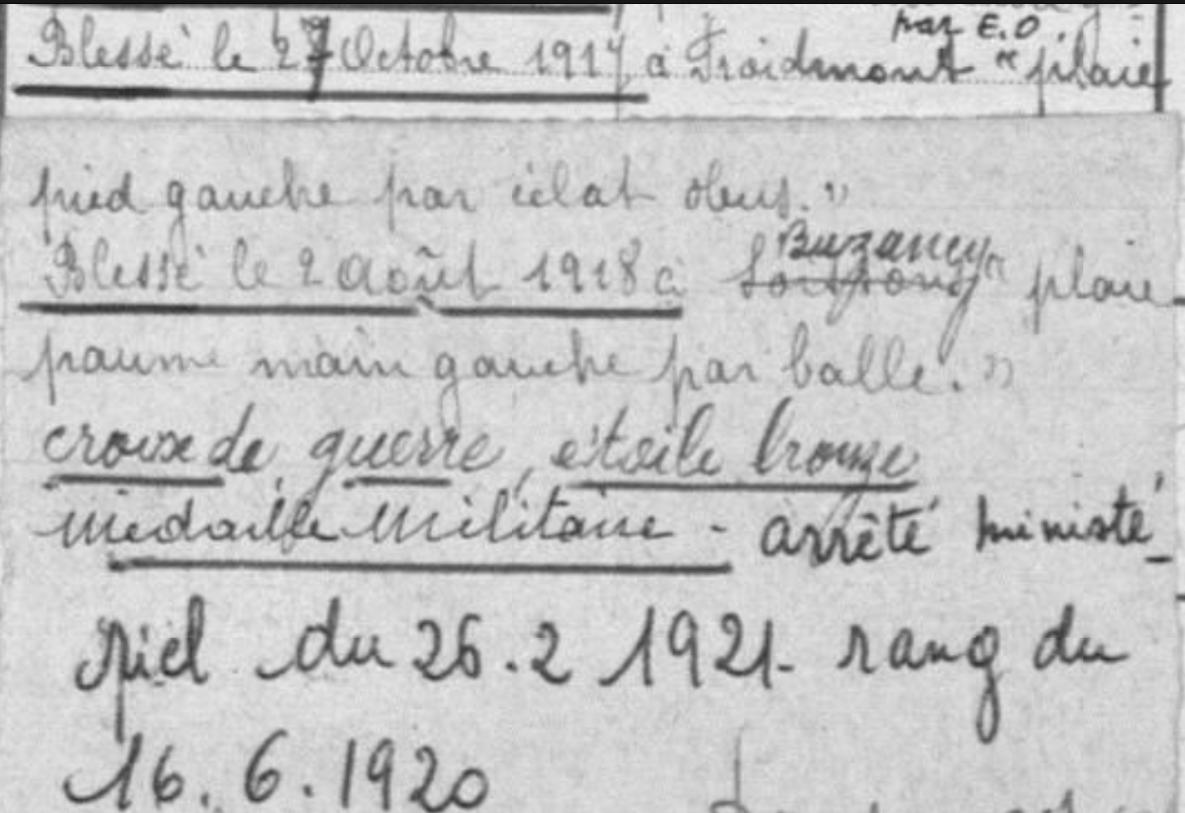 par E.O.
Blessé le 27 Octobre 1917 à Froidmont "plaie
pied gauche par éclat obus."
Buzancy
Blessé le 2 Août 1918 à " plaie
paume main gauche par balle."
croix de guerre, étoile bronze
médaille militaire - arrêté ministé-
riel du 26.2 1921- rang du
16.6.1920